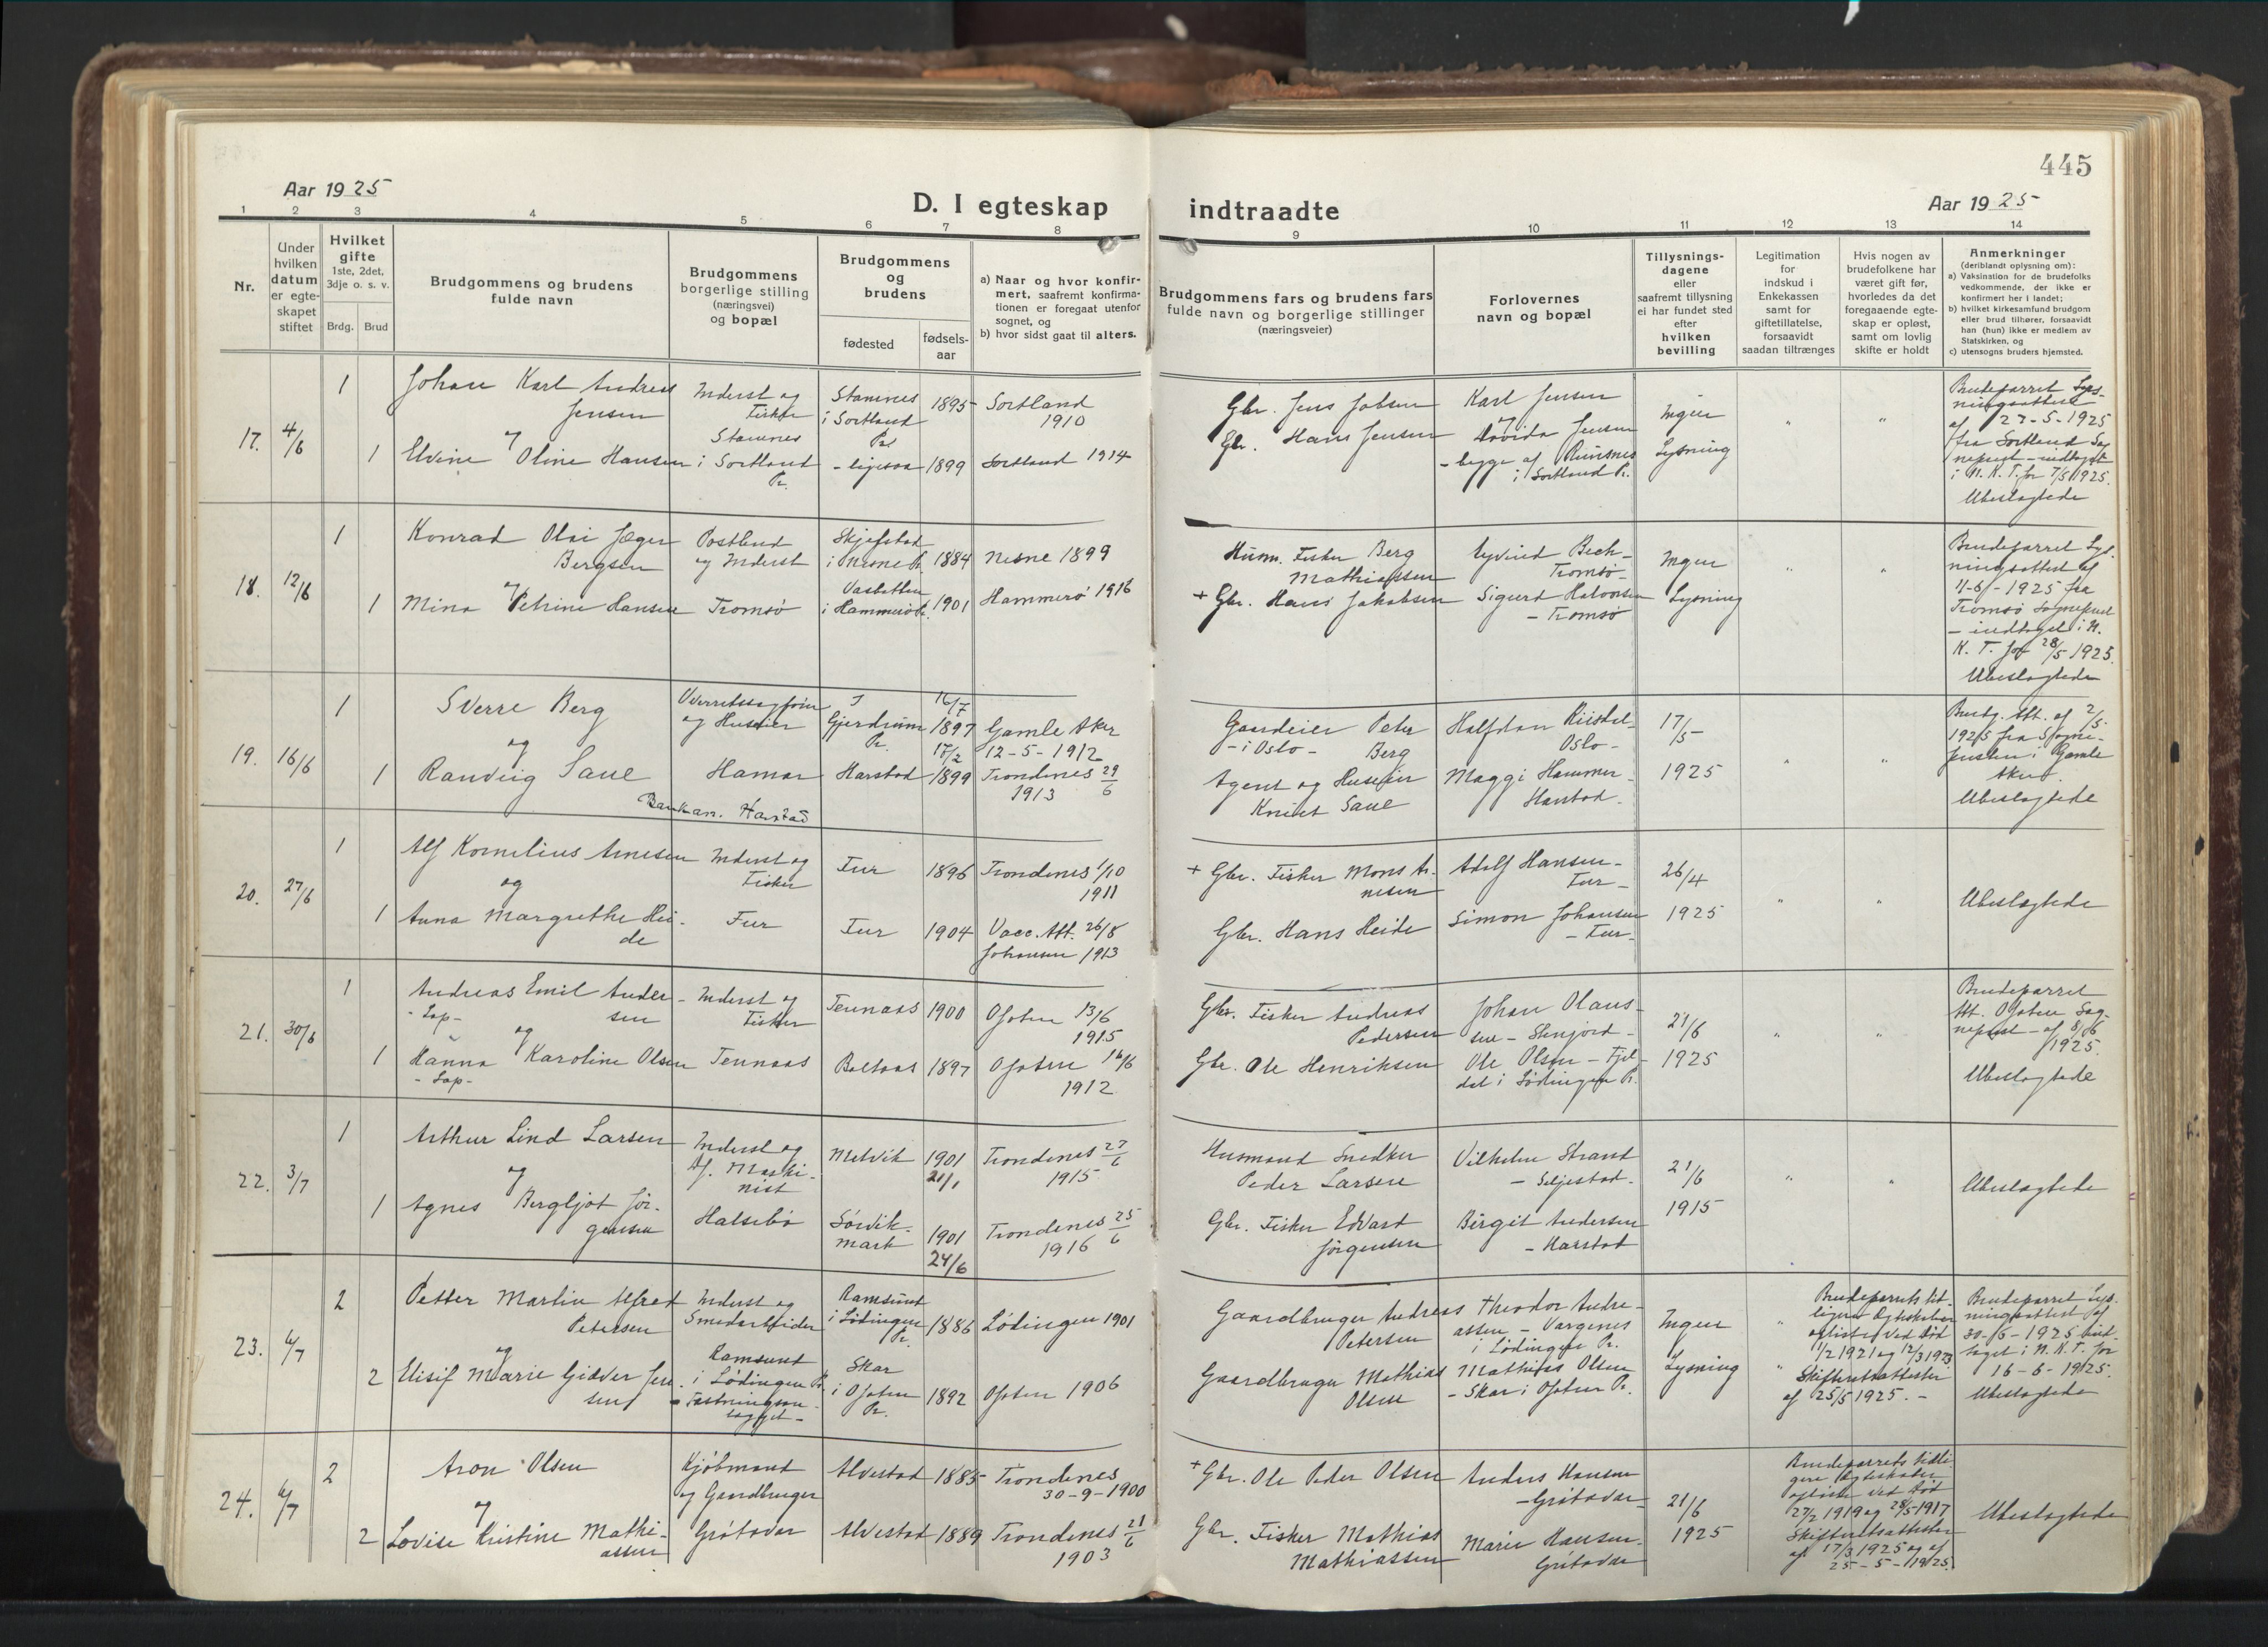 445
Aar 1925
D. I egteskap indtraadte
Aar 1925
1 2 3 4 5 6 7 8 9 10 11 12 13 14
Nr.
Under hvilken datum er egte-skapet stiftet
Hvilket gifte
1ste, 2det, 3dje o. s. v.
Brdg. Brud
Brudgommens og brudens fulde navn
Brudgommens borgerlige stilling (næringsvei) og bopæl
Brudgommens og brudens
fødested
fødsels-aar
a) Naar og hvor konfir-mert, saafremt konfirma-tionen er foregaat utenfor sognet, og
b) hvor sidst gaat til alters.
Brudgommens fars og brudens fars fulde navn og borgerlige stillinger (næringsveier)
Forlovernes navn og bopæl
Tillysnings-dagene eller saafremt tillysning ei har fundet sted efter hvilken bevilling
Legitimation for indskud i Enkekassen samt for giftetillatelse, forsaavidt saadan tiltrænges
Hvis nogen av brudefolkene har været gift før, hvorledes da det foregaaende egte-skap er opløst, samt om lovlig skifte er holdt
Anmerkninger
(deriblandt oplysning om):
a) Vaksination for de brudefolks vedkommende, der ikke er konfirmert her i landet;
b) hvilket kirkesamfund brudgom eller brud tilhører, forsaavidt han (hun) ikke er medlem av Statskirken, og
c) utensogns bruders hjemsted.
17. 4/6
1 Johan Karl Andreas Jensen
og
1 Elvine Oline Hansen
Inderst og Fisker
Stamnes i Sortland Pr.
Stamnes i Sortland Pr. 1895 Sortland 1910
- ligesaa 1899 Sortland 1914
Gbr. Jens Jobsen
Gbr. Hans Jensen
Karl Jensen
og
Hovida Jensen
- begge af
i Sortland Pr.
Ingen Lysning
" "
Brudeparret Lys-
ningsattest
af 23-5-1925
fra Sortland Sog
neprest - indtaget
i N. K. T. for 7/5 1925.
Ubeslægtede
18. 12/6
1 Konrad Olai Jæger Bergsen
og
1 Mina Petrine Hansen
Postbud og Inderst
Tromsø
Skjefstad i Nesne Pr. 1884 Nesne 1899
i Hammerø Pr. 1901 Hammerø 1916
Husm. Fisker Berg Mathiassen
+ Gbr. Hans Jakobsen
Øyvind Bech - Tromsø -
Sigurd Halvorsen - Tromsø
Ingen Lysning
" "
Brudeparret Lys-
ningsattest af
11-6-1925 fra
Tromsø Sogneprest
- indtaget i N.
K. T. for 28/5 1925.
Ubeslægtede
19. 16/6
1 Sverre Berg
og
1 Randvig Saue
Overretssagfører og Huseier
Hamar
Bankan. Harstad
I Gjerdrum Pr. 16/7 1897 Gamle Aker 12-5-1912
Harstad 17/2 1899 Trondenes 29/6 1913
Gaardeier Peter Berg - i Oslo -
Agent og Huseier Knut Saue
Halfdan Oslo -
Maggi Hammer - Harstad.
17/5 1925
" "
Brudg. Att. af 2/5.
1925 fra Sogne-
presten i Gamle
Aker.
Ubeslægtede
20. 27/6
1 Alf Kornelius Arnesen
og
1 Anna Margrethe Hei-
de
Inderst og Fisker
Fur
Fur 1896 Trondenes 1/10 1911
Fur 1904 Vacc. Att. 26/8 Johansen 1913
+ Gbr. Fisker Mons Ar-
nesen
Gbr. Hans Heide
Adolf Hansen - Fur -
Simon Johansen - Fur -
26/4 1925
" "
Ubeslægtede
21. 30/6
1 Andreas Emil Ander-
- Lap - sen
og
1 Hanna Karoline Olsen
- Lap -
Inderst og Fisker
Tennaas
Tennaas 1900 Ofoten 13/6 1915
Boltaas 1897 Ofoten 16/6 1912
Gbr. Fisker Andreas Pedersen
Gbr. Ole Henriksen
Johan Olaus-
sen - Stenjord -
Ole Olsen - Fjel-
dal i Lødingen Pr.
21/6 1925
" "
Brudeparret
Att. Ofoten Sog-
neprest - af 8/6
1925.
Ubeslægtede
22. 3/7
1 Arthur Lind Larsen
og
1 Agnes Bergljot Jør-
gensen
Inderst og
Af. Maski-
nist
Halsebø
Melvik 1901 21/1 Trondenes 27/6 1915
Sørvik-
mark 1901 24/6 Trondenes 25/6 1916
Husmand Snedker Peder Larsen
Gbr. Fisker Edvart Jørgensen
Vilhelm Strand - Seljestad -
Birgit Andersen - Harstad
21/6 1915
" "
Ubeslægtede
23. 6/7
2 Petter Martin Alfred Petersen
og
2 Elisif Marie Gidver Jen
sen
Inderst og Smedarbeider
Ramsund i Lødingen Pr.
Ramsund i Lødingen Pr. 1886 Lødingen 1901
Skar i Ofoten Pr. 1892 Ofoten 1906
Gaardbruger Andreas Petersen
Gaardbruger Mathias Olsen
Theodor Andre-
assen - Vargenes
i Lødingen Pr.
Mathias Olsen
- Skar i Ofoten Pr.
Ingen Lysning
Brudeparrets tid-
ligere Egteskaber
opløst ved Død
1/2 1921 og 12/3 1923
Skifteretsattester
af 25/5 1925. -
Brudeparret Lys-
ningsattest af
30-6-1925 ind-
taget i N. K. T. for
16-6-1925.
Ubeslægtede
24. 6/7
2 Aron Olsen
og
2 Lovise Kristine Mathi-
assen
Kjøbmand og Gaardbruger
Grøtavær
Alvestad 1885 Trondenes 30-9-1900
Alvestad 1889 Trondenes 21/6 1903
+ Gbr. Ole Peder Olsen
Gbr. Fisker Mathias Mathiassen
Anders Hansen - Grøtavær -
Marie Hansen - Grøtavær
21/6 1925
Brudeparrets tidli
gere Egteskaber
opløst ved Død
27/2 1919 og 28/5 1917
Skifteretsattester
af 17/3 1925 og af
25-5-1925.
Ubeslægtede